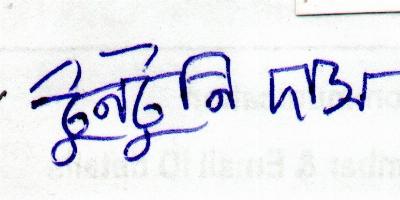 টুনটুনি দাস